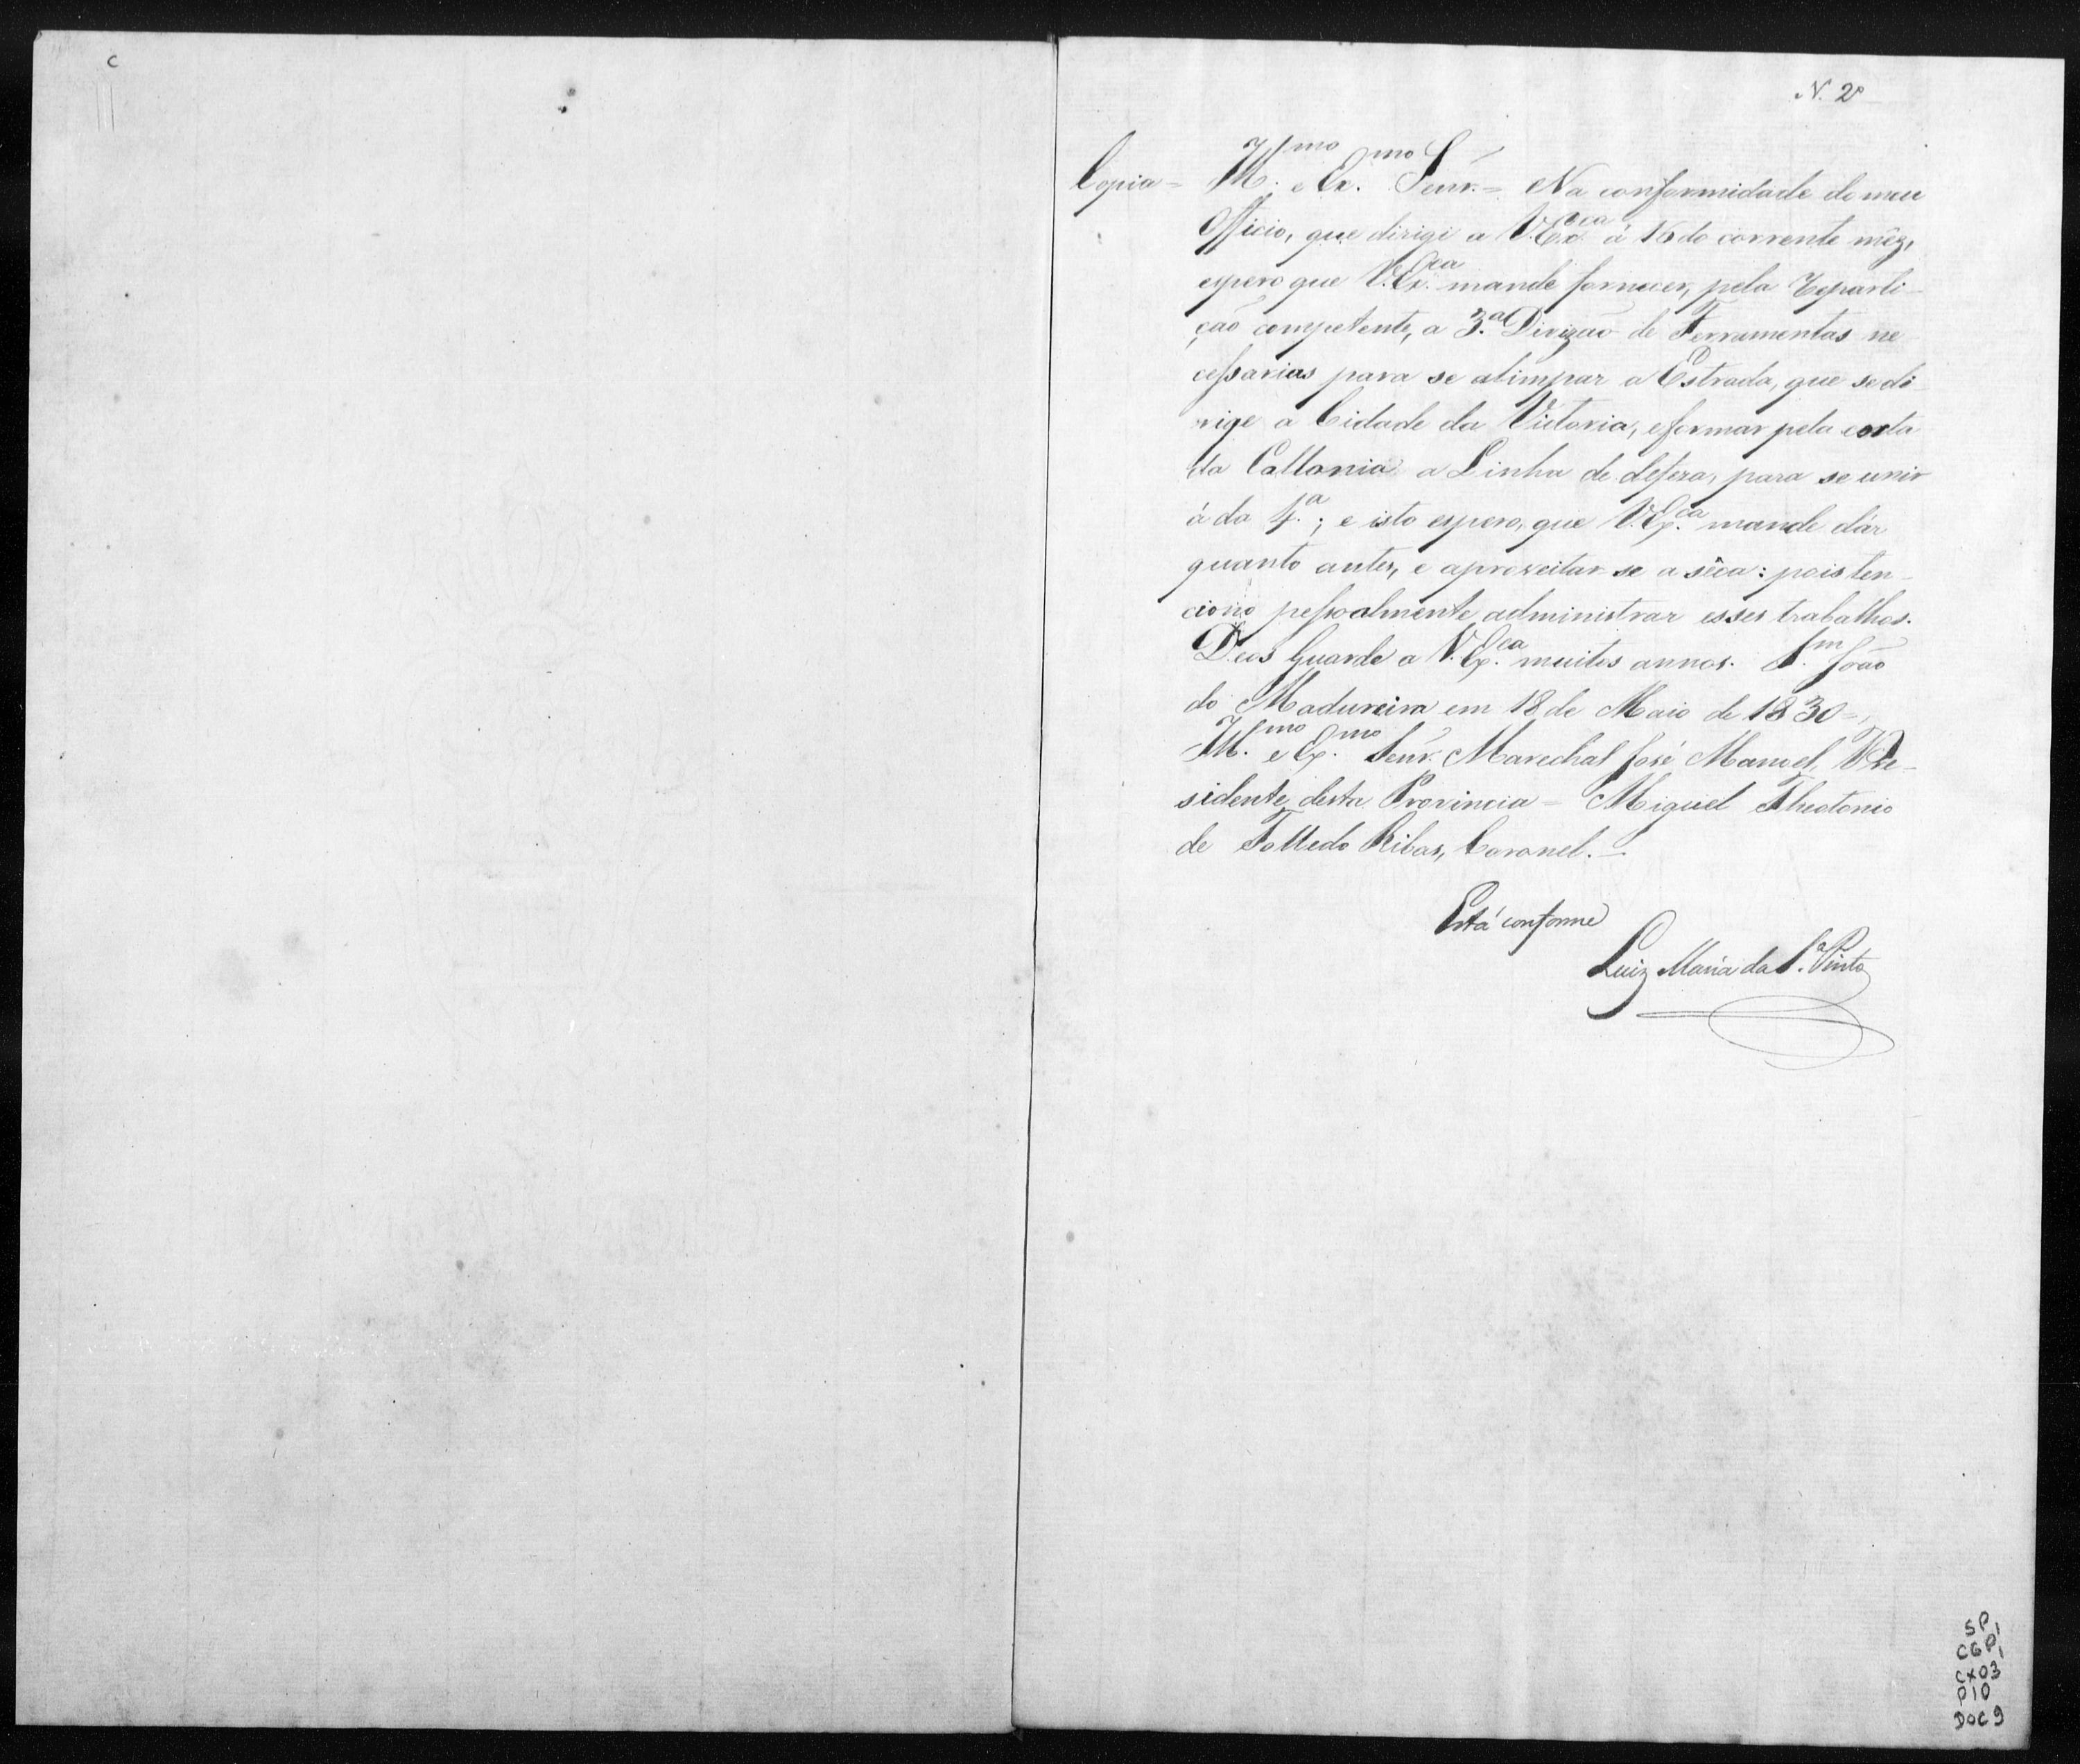 C
N. 2º
Copia = Ill.mo e Ex.mo Senr. = Na conformidade do meu
Officio, que dirigi a V. Ex.cia á 16 do corrente mêz,
espero que V. Ex.cia mande fornecer, pela Reparti-
ção competente, a 3.ª Divizão de Ferramentas ne
cessarias para se alimpar a Estrada, que se di
rige a Cidade da Victoria, e formar pela costa
da Collonia a Linha de defeza, para se unir
á da 4.ª; e isto espero, que V. Ex.ca mande dár
quanto antes, e aproveitar-se a sêca: pois ten-
ciono pessoalmente administrar esses trabalhos.
Deos Guarde a V. Ex.ca muitos annos. S.m João
do Madureira em 18 de Maio de 1830 =
Ill.mo e Ex.mo Senr. Marechal José Manoel, V Pre-
sidente desta Provincia = Miguel Theotonio
de Tolledo Ribas, Coronel. =
Está conforme
Luiz Maria da S.ª Pinto
SP,
CGP,
CX03,
P10
DOC 9